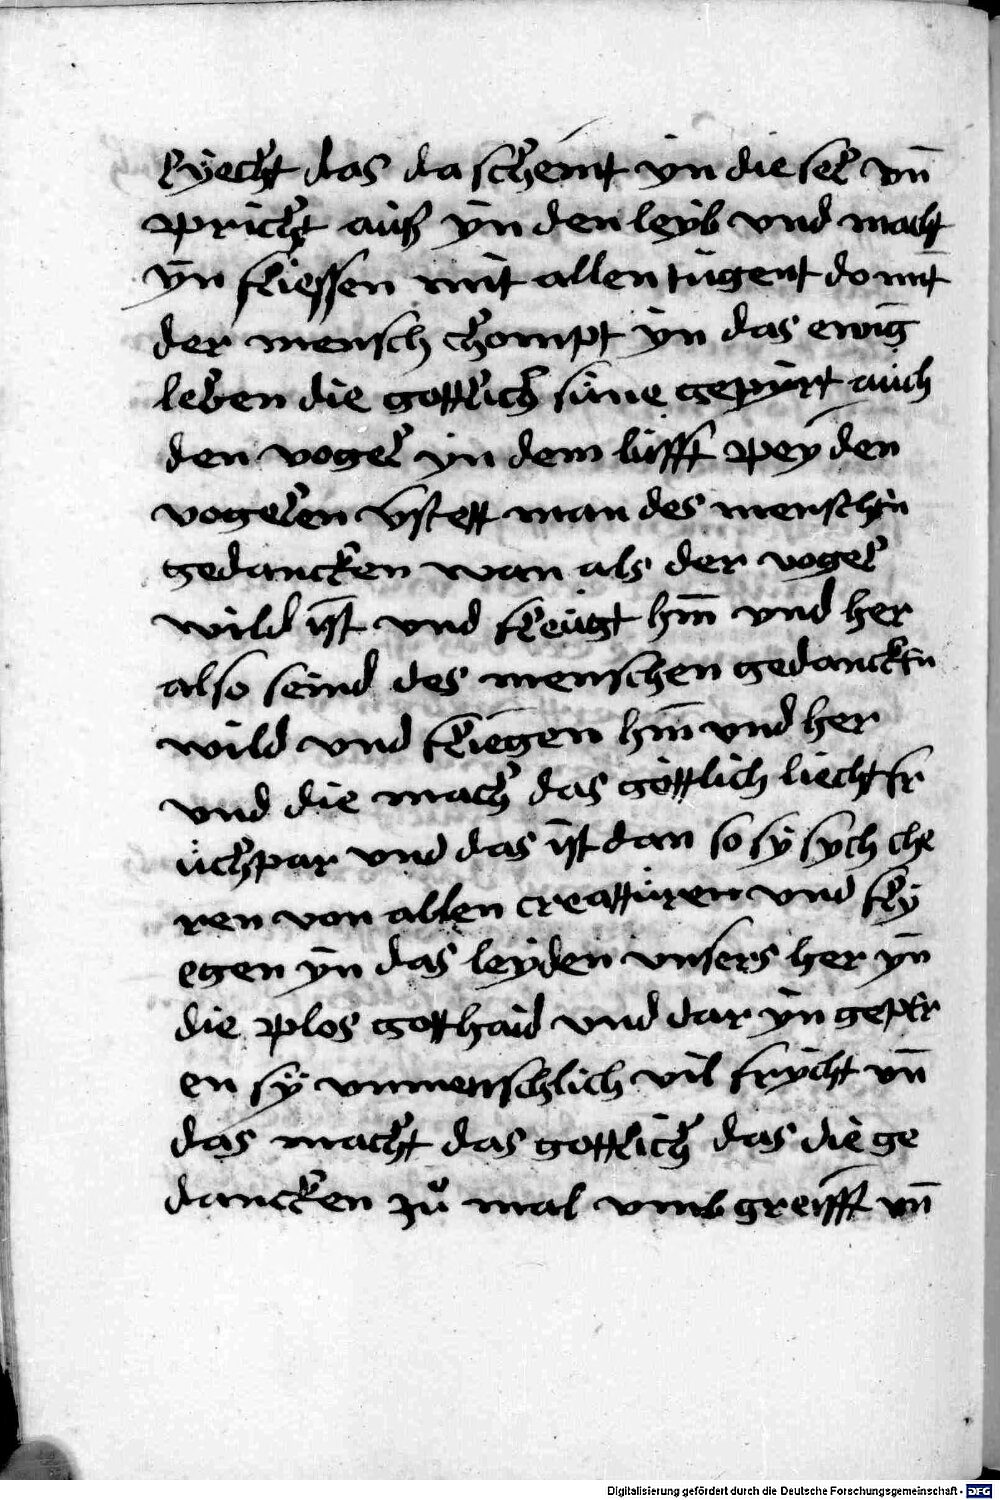 lyecht das da scheint yn die sel vn̄
pricht auß yn den leyb vnd macht
yn fliessen mit allen tugent do mit
der mensch chompt yn das ewig
leben die gottlich sune gepirt auch
den vogel yn dem lufft pey den
vogelen vstett man des menschen
gedancken wan als der vogel
wild ist vnd fleugt hin vnd her
also seind des menschen gedancken
wild vnd fliegen hin vnd her
vnd die mach das göttlich liecht fr
uchpar vnd das ist dan so sy sych che
ren von allen creatturen vnd fly
egen yn das leyden vnsers her yn
die plos gotthaid vnd dar yn geper
en sy vnmenschlich vil frycht vn̄
das macht das gottlich das die ge
dancken zů mal vmb greifft vn̄
Digitalisierung gefördert durch die Deutsche Forschungsgemeinschaft - DFG